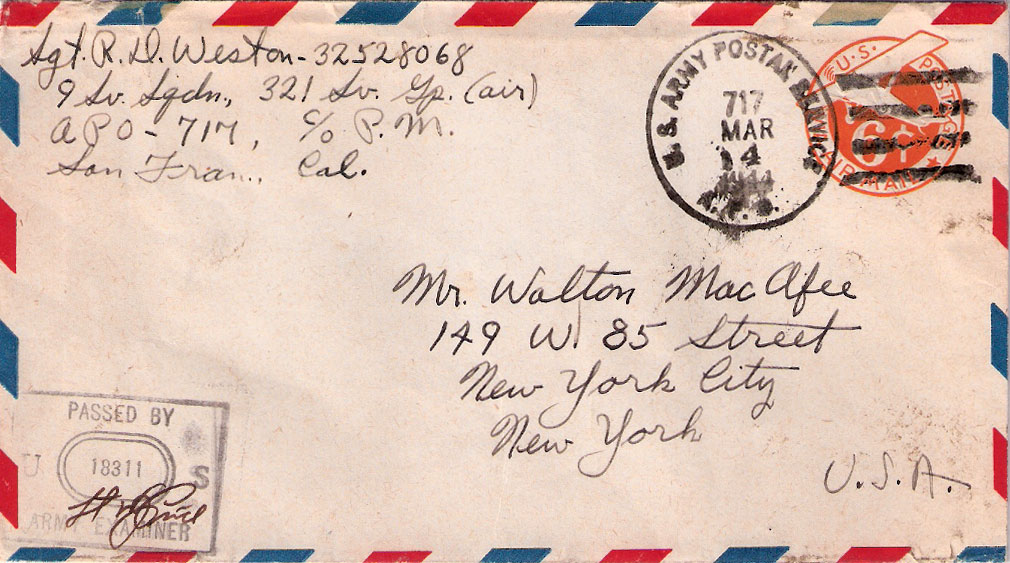 Sgt. R. D. Weston - 32528068
9 Sv. Sqdn., 321 Sv. Gp. (air)
APO - 717, c/o P. M.
San Fran., Cal.
U.S. ARMY POSTAL SERVICE
717
MAR
14
1944
A.P.O.
U.S. POSTAGE
6¢
AIR MAIL
Mr. Walton MacAfee
149 W. 85 Street
New York City
New York
U.S.A.
PASSED BY
U 18311 S
ARMY EXAMINER